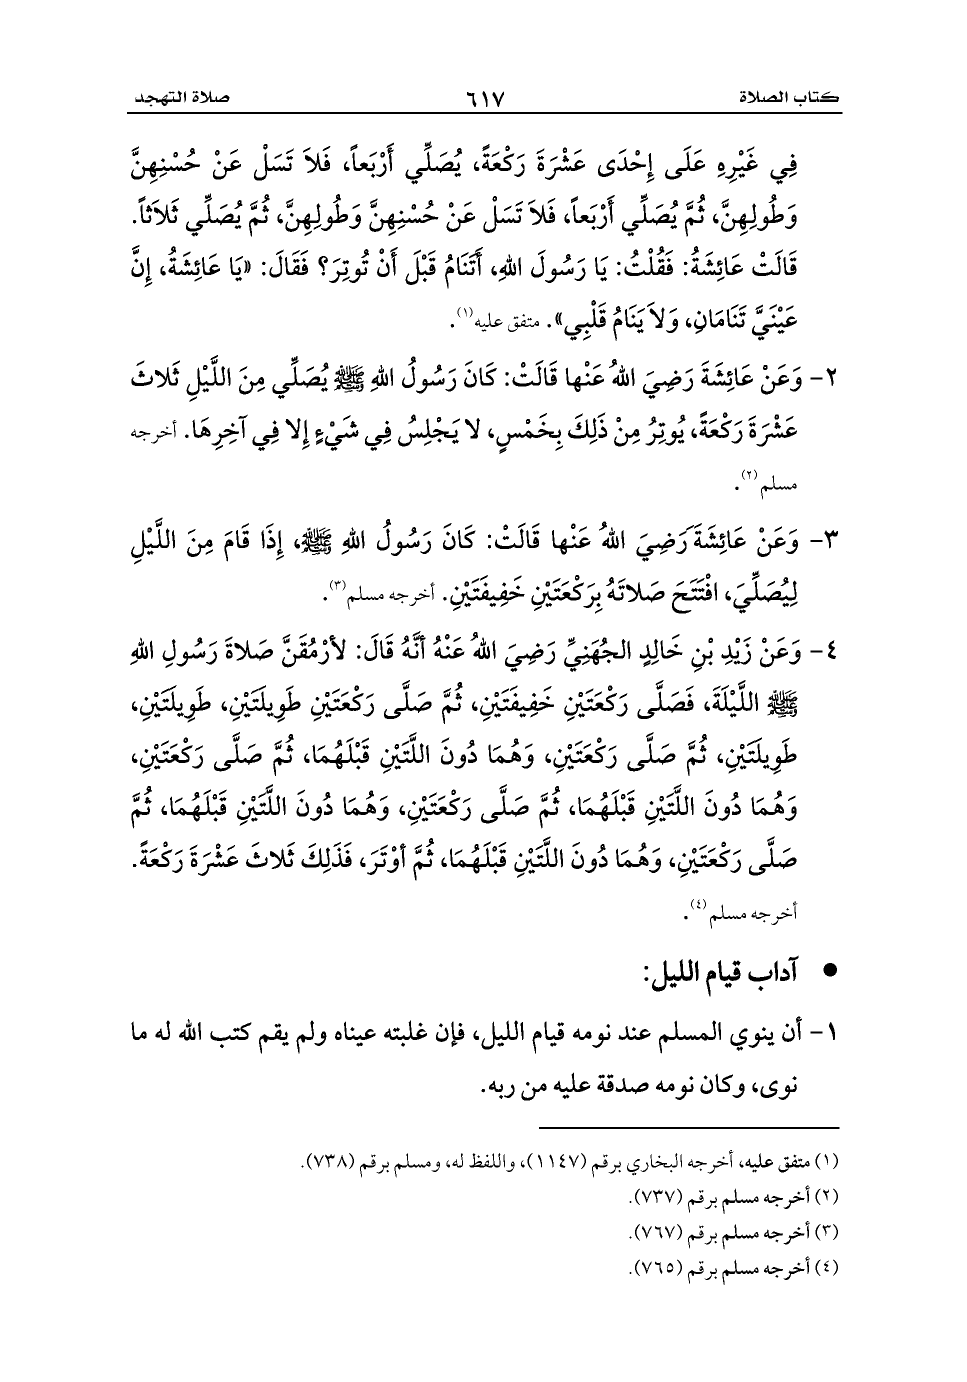 كتاب الصلاة ٦١٧ صلاة التهجد
فِي غَيْرِهِ عَلَى إِحْدَى عَشْرَةَ رَكْعَةً، يُصَلِّي أَرْبَعاً، فَلاَ تَسَلْ عَنْ حُسْنِهِنَّ
وَطُولِهِنَّ، ثُمَّ يُصَلِّي أَرْبَعاً، فَلاَ تَسَلْ عَنْ حُسْنِهِنَّ وَطُولِهِنَّ، ثُمَّ يُصَلِّي ثَلاَثاً.
قَالَتْ عَائِشَةُ: فَقُلْتُ: يَا رَسُولَ اللهِ، أَتَنَامُ قَبْلَ أَنْ تُوتِرَ؟ فَقَالَ: «يَا عَائِشَةُ، إِنَّ
عَيْنَيَّ تَنَامَانِ، وَلاَ يَنَامُ قَلْبِي». متفق عليه(١).
٢- وَعَنْ عَائِشَةَ رَضِيَ اللهُ عَنْها قَالَتْ: كَانَ رَسُولُ اللهِ ﷺ يُصَلِّي مِنَ اللَّيْلِ ثَلاثَ
عَشْرَةَ رَكْعَةً، يُوتِرُ مِنْ ذَلِكَ بِخَمْسٍ، لا يَجْلِسُ فِي شَيْءٍ إِلا فِي آخِرِهَا. أخرجه
مسلم(٢).
٣- وَعَنْ عَائِشَةَ رَضِيَ اللهُ عَنْها قَالَتْ: كَانَ رَسُولُ اللهِ ﷺ، إِذَا قَامَ مِنَ اللَّيْلِ
لِيُصَلِّيَ، افْتَتَحَ صَلاتَهُ بِرَكْعَتَيْنِ خَفِيفَتَيْنِ. أخرجه مسلم(٣).
٤- وَعَنْ زَيْدِ بْنِ خَالِدٍ الجُهَنِيِّ رَضِيَ اللهُ عَنْهُ أنَّهُ قَالَ: لأرْمُقَنَّ صَلاةَ رَسُولِ اللهِ
ﷺ اللَّيْلَةَ، فَصَلَّى رَكْعَتَيْنِ خَفِيفَتَيْنِ، ثُمَّ صَلَّى رَكْعَتَيْنِ طَوِيلَتَيْنِ، طَوِيلَتَيْنِ،
طَوِيلَتَيْنِ، ثُمَّ صَلَّى رَكْعَتَيْنِ، وَهُمَا دُونَ اللَّتَيْنِ قَبْلَهُمَا، ثُمَّ صَلَّى رَكْعَتَيْنِ،
وَهُمَا دُونَ اللَّتَيْنِ قَبْلَهُمَا، ثُمَّ صَلَّى رَكْعَتَيْنِ، وَهُمَا دُونَ اللَّتَيْنِ قَبْلَهُمَا، ثُمَّ
صَلَّى رَكْعَتَيْنِ، وَهُمَا دُونَ اللَّتَيْنِ قَبْلَهُمَا، ثُمَّ أوْتَرَ، فَذَلِكَ ثَلاثَ عَشْرَةَ رَكْعَةً.
أخرجه مسلم(٤).
● آداب قيام الليل:
١- أن ينوي المسلم عند نومه قيام الليل، فإن غلبته عيناه ولم يقم كتب الله له ما
نوى، وكان نومه صدقة عليه من ربه.
(١) متفق عليه، أخرجه البخاري برقم (١١٤٧)، واللفظ له، ومسلم برقم (٧٣٨).
(٢) أخرجه مسلم برقم (٧٣٧).
(٣) أخرجه مسلم برقم (٧٦٧).
(٤) أخرجه مسلم برقم (٧٦٥).